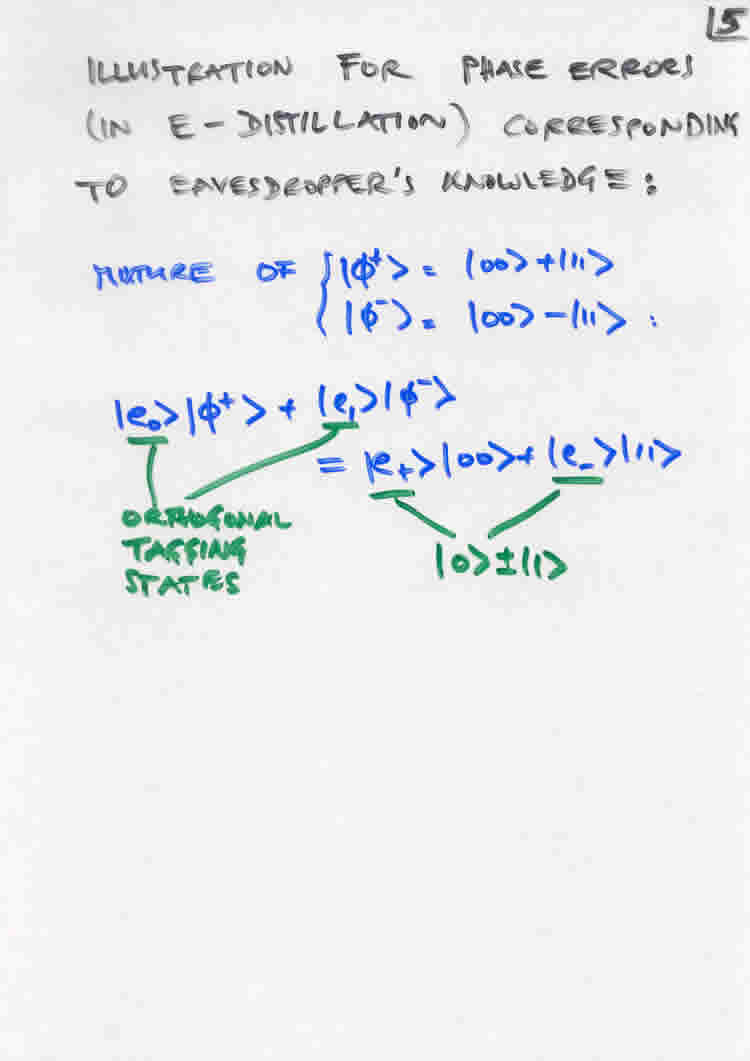 15
ILLUSTRATION FOR PHASE ERRORS
(IN E-DISTILLATION) CORRESPONDING
TO EAVESDROPPER'S KNOWLEDGE:
MIXTURE OF { |ϕ⁺> = |00> + |11>
|ϕ⁻> = |00> - |11> :
|e₀>|ϕ⁺> + |e₁>|ϕ⁻>
= |e₊>|00> + |e₋>|11>
ORTHOGONAL
TAGGING
STATES
|0> ± |1>